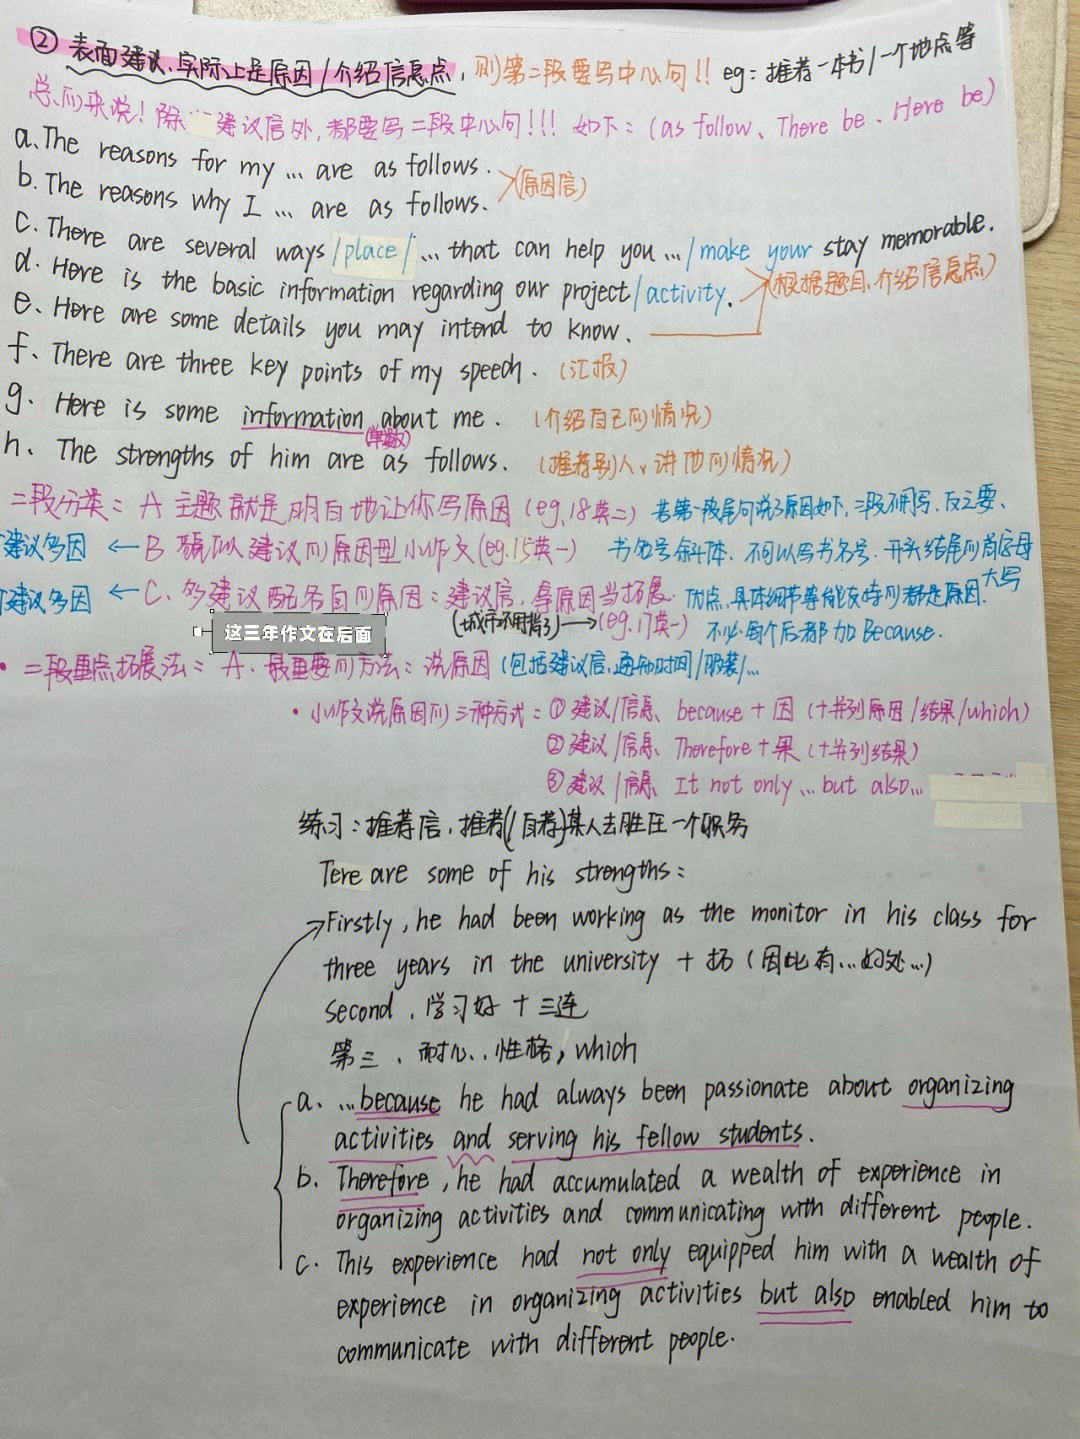 ② 表面建议、实际上是原因/介绍信息点，则第二段要写中心句!! eg：推荐一本书/一个地点等
总的来说！除…建议信外，都要写二段中心句!!! 如下：(as follow、There be、Here be)
a.The reasons for my ... are as follows.
b.The reasons why I ... are as follows. (原因信)
C.There are several ways/place/... that can help you .../make your stay memorable.
d.Here is the basic information regarding our project/activity. (根据题目、介绍信息点)
e.Here are some details you may intend to know.
f、There are three key points of my speech. (汇报)
g. Here is some information about me. (介绍自己的情况)
(单数)
h、The strengths of him are as follows. (推荐别人、讲他的情况)
二段分类：A 主题就是明白地让你写原因 (eg.18英二) 若第一段尾句说了原因如下，二段不用写，反之要、
建议多因 ← B 貌似建议的原因型小作文(eg.15英一) 书名号斜体、不可以写书名号、开头结尾的首字母大写
建议多因 ← C、多建议配各自的原因：建议信，拿原因当拓展、优点，具体细节等能支持的都是原因、
(城市不用背了)→(eg.17英一) 不必每个后都加Because.
这三年作文在后面
• 二段重点拓展法：A、最重要的方法：说原因 (包括建议信、通知时间/服装/...
• 小作文说原因的三种方式：① 建议/信息、because + 因 (+并列原因/结果/which)
② 建议/信息、Therefore + 果 (+并列结果)
③ 建议/信息、It not only ... but also...
练习：推荐信，推荐(/自荐)某人去胜任一个职务
Tere are some of his strengths：
Firstly, he had been working as the monitor in his class for
three years in the university + 拓 (因此有...好处...)
second，学习好 + 三连
第三、耐心、性格，which
a. ...because he had always been passionate about organizing
activities and serving his fellow students.
b. Therefore, he had accumulated a wealth of experience in
organizing activities and communicating with different people.
c. This experience had not only equipped him with a wealth of
experience in organizing activities but also enabled him to
communicate with different people.